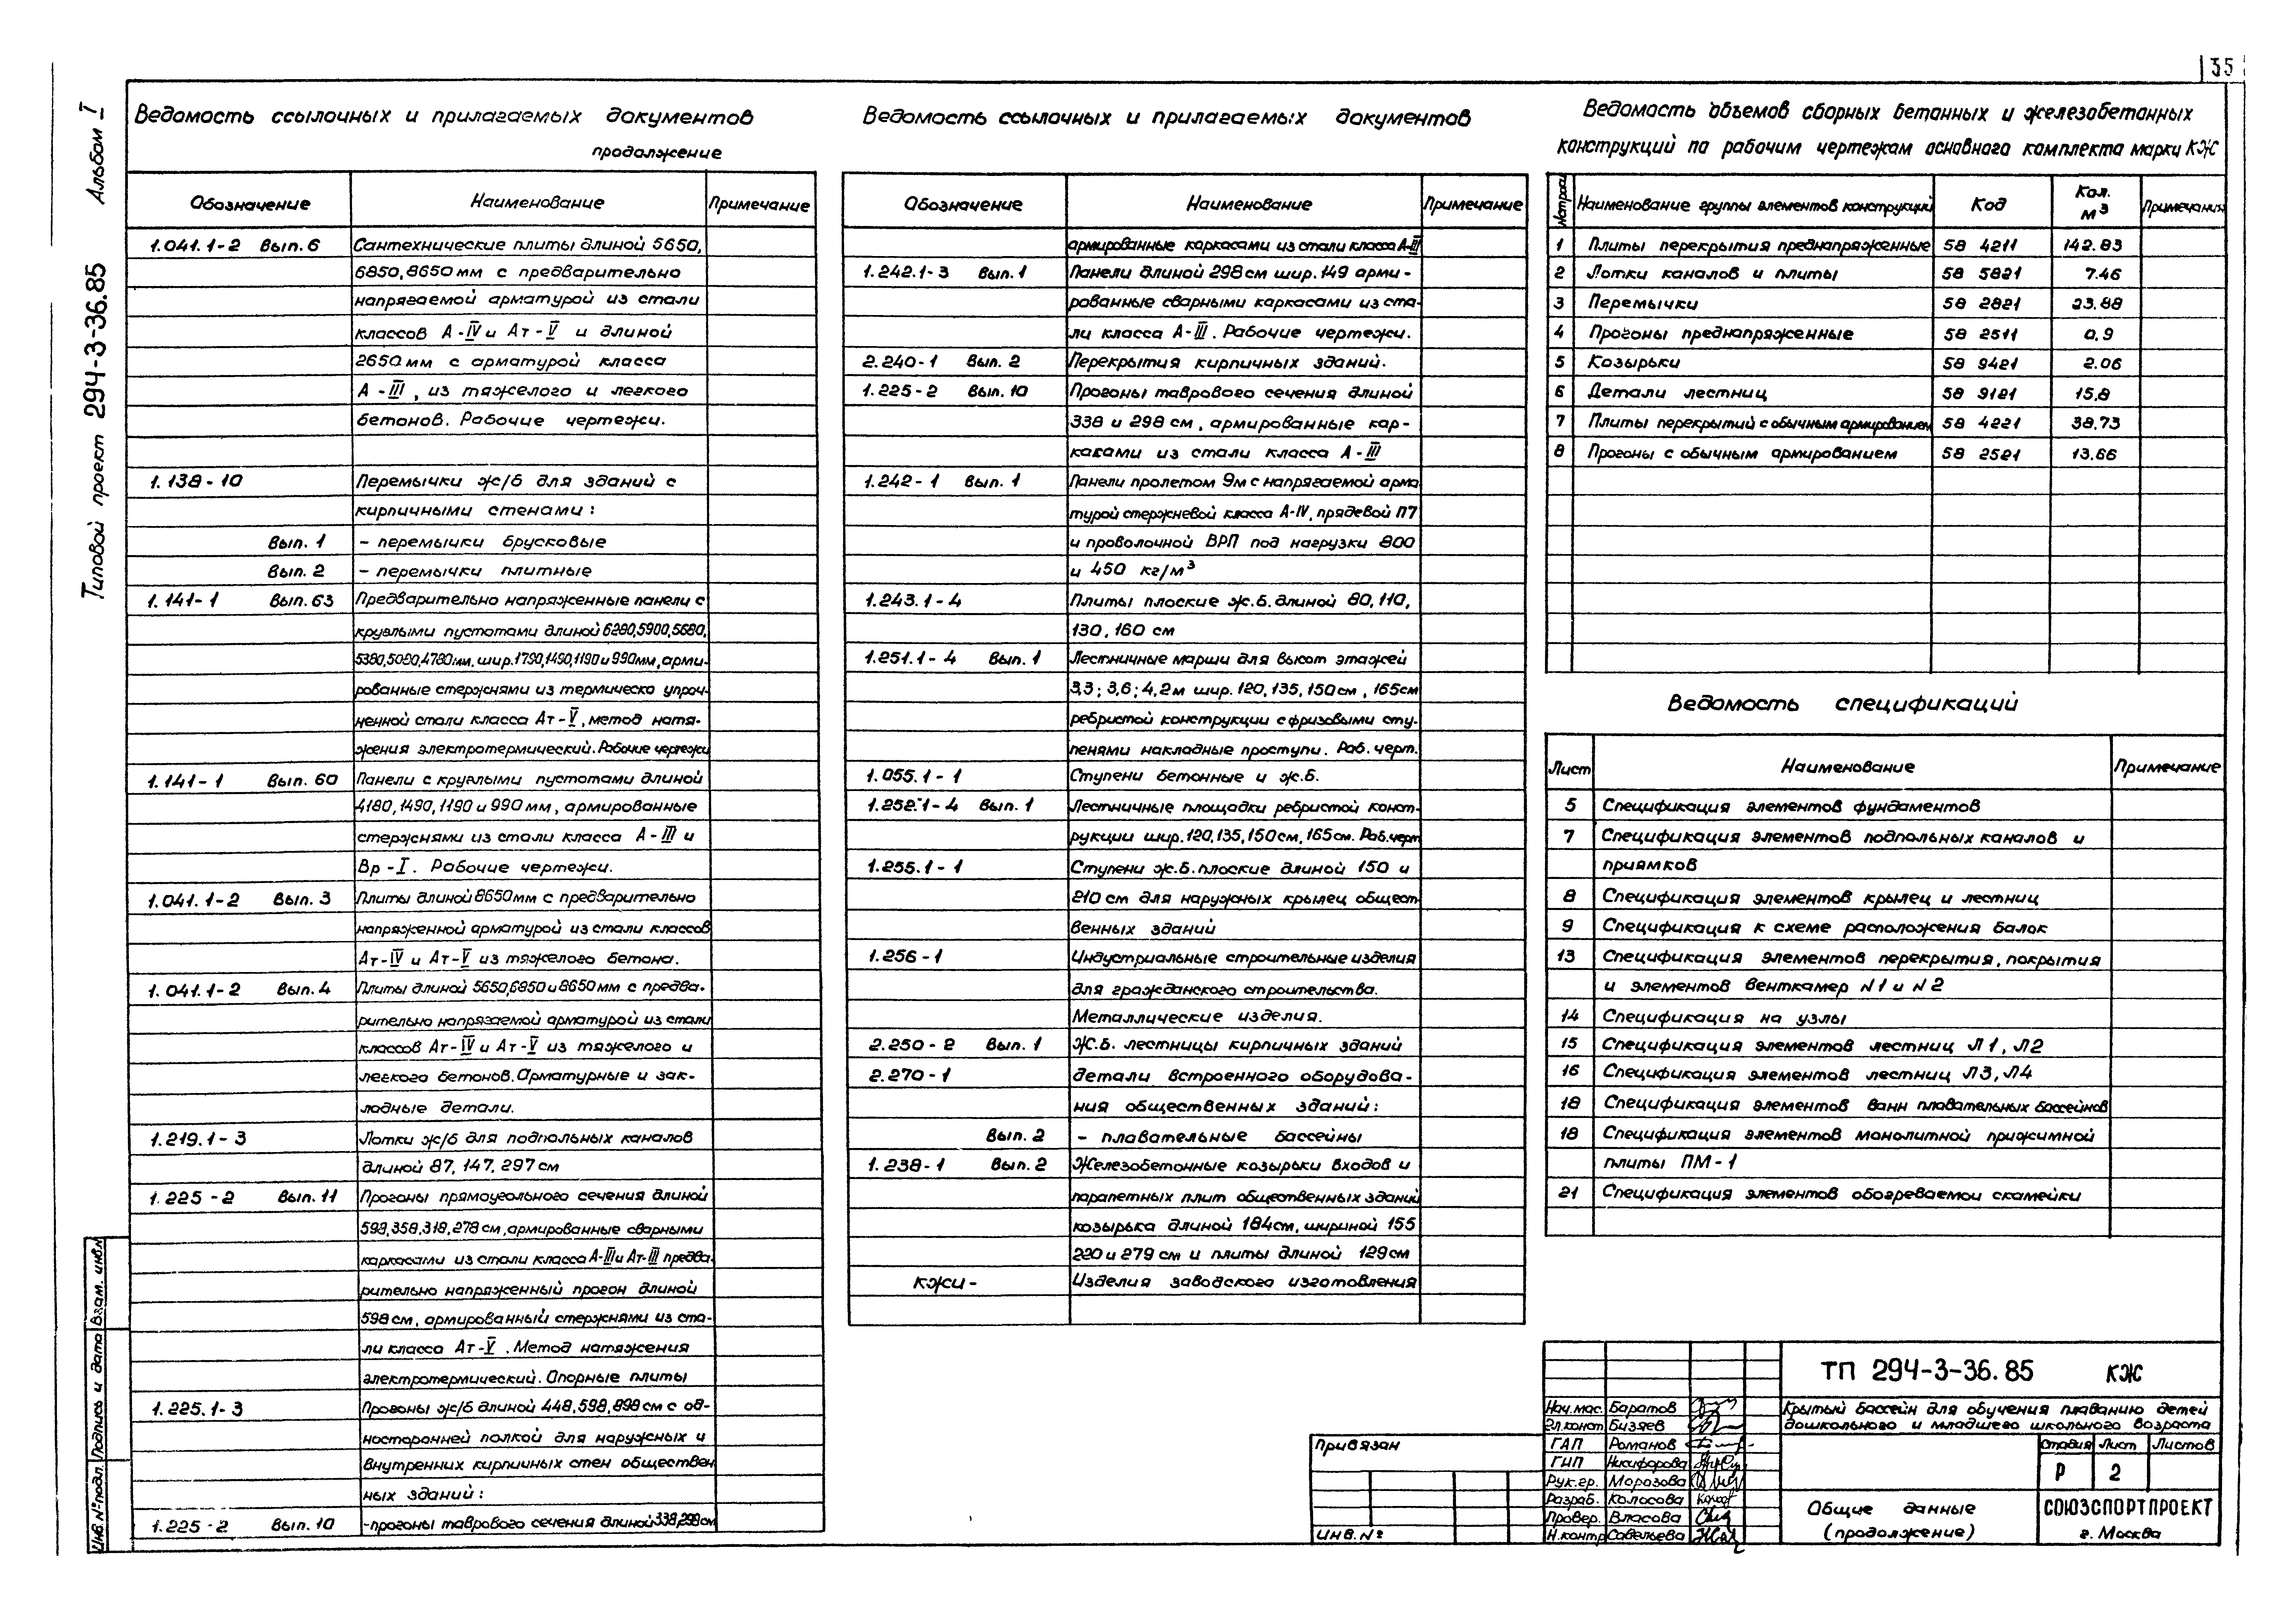 35
Альбом I
Типовой проект 294-3-36.85
Ведомость ссылочных и прилагаемых документов
продолжение
Обозначение Наименование Примечание
1.041.1-2 Вып. 6 Сантехнические плиты длиной 5650,
6850, 8650 мм с предварительно
напрягаемой арматурой из стали
классов А-IV и Ат-V и длиной
2650 мм с арматурой класса
А-III, из тяжелого и легкого
бетонов. Рабочие чертежи.
1.138-10 Перемычки ж/б для зданий с
кирпичными стенами:
Вып. 1 - перемычки брусковые
Вып. 2 - перемычки плитные
1.141-1 Вып. 63 Предварительно напряженные панели с
круглыми пустотами длиной 6280, 5900, 5680,
5380, 5080, 4780мм. шир. 1790, 1490, 1190 и 990мм, арми-
рованные стержнями из термическо упроч-
ненной стали класса Ат-V, метод натя-
жения электротермический. Рабочие чертежи
1.141-1 Вып. 60 Панели с круглыми пустотами длиной
4180, 1490, 1190 и 990 мм, армированные
стержнями из стали класса А-III и
Вр-I. Рабочие чертежи.
1.041.1-2 Вып. 3 Плиты длиной 8650мм с предварительно
напряженной арматурой из стали классов
Ат-IV и Ат-V из тяжелого бетона.
1.041.1-2 Вып. 4 Плиты длиной 5650, 6850 и 8650 мм с предва-
рительно напрягаемой арматурой из стали
классов Ат-IV и Ат-V из тяжелого и
легкого бетонов. Арматурные и зак-
ладные детали.
1.219.1-3 Лотки ж/б для подпольных каналов
длиной 87, 147, 297 см
1.225-2 Вып. 11 Прогоны прямоугольного сечения длиной
598, 358, 318, 278 см, армированные сварными
каркасами из стали класса А-III и Ат-III предва-
рительно напряженный прогон длиной
598 см, армированный стержнями из ста-
ли класса Ат-V. Метод натяжения
электротермический. Опорные плиты
1.225.1-3 Прогоны ж/б длиной 448, 598, 898 см с од-
носторонней полкой для наружных и
внутренних кирпичных стен обществен
ных зданий:
1.225-2 Вып. 10 -прогоны таврового сечения длиной 338, 298 см
Ведомость ссылочных и прилагаемых документов
Обозначение Наименование Примечание
армированные каркасами из стали класса А-III
1.242.1-3 Вып. 1 Панели длиной 298 см шир. 149 арми-
рованные сварными каркасами из ста-
ли класса А-III. Рабочие чертежи.
2.240-1 Вып. 2 Перекрытия кирпичных зданий.
1.225-2 Вып. 10 Прогоны таврового сечения длиной
338 и 298 см, армированные кар-
касами из стали класса А-III
1.242-1 Вып. 1 Панели пролетом 9м с напрягаемой арма
турой стержневой класса А-IV, прядевой П7
и проволочной ВРП под нагрузки 800
и 450 кг/м³
1.243.1-4 Плиты плоские ж.б. длиной 80, 110,
130, 160 см
1.251.1-4 Вып. 1 Лестничные марши для высот этажей
3,3; 3,6; 4,2м шир. 120, 135, 150см, 165см
ребристой конструкции с фризовыми сту-
пенями накладные проступи. Раб. черт.
1.055.1-1 Ступени бетонные и ж.б.
1.252.1-4 Вып. 1 Лестничные площадки ребристой конст-
рукции шир. 120, 135, 150см, 165см. Раб. черт
1.255.1-1 Ступени ж.б. плоские длиной 150 и
210 см для наружных крылец общест
венных зданий
1.256-1 Индустриальные строительные изделия
для гражданского строительства.
Металлические изделия.
2.250-2 Вып. 1 Ж.б. лестницы кирпичных зданий
2.270-1 детали встроенного оборудова-
ния общественных зданий:
Вып. 2 - плавательные бассейны
1.238-1 Вып. 2 Железобетонные козырьки входов и
парапетных плит общественных зданий
козырька длиной 184см, шириной 155
220 и 279 см и плиты длиной 129см
КЖИ- Изделия заводского изготовления
Ведомость объемов сборных бетонных и железобетонных
конструкций по рабочим чертежам основного комплекта марки КЖ
Наименование группы элементов конструкций Код Кол. м³ Примечания
1 Плиты перекрытия преднапряженные 58 4211 142.83
2 Лотки каналов и плиты 58 5821 7.46
3 Перемычки 58 2821 23.88
4 Прогоны преднапряженные 58 2511 0,9
5 Козырьки 58 9421 2.06
6 Детали лестниц 58 9121 15,8
7 Плиты перекрытий с обычным армированием 58 4221 38.73
8 Прогоны с обычным армированием 58 2521 13.66
Ведомость спецификаций
Лист Наименование Примечание
5 Спецификация элементов фундаментов
7 Спецификация элементов подпольных каналов и
приямков
8 Спецификация элементов крылец и лестниц
9 Спецификация к схеме расположения балок
13 Спецификация элементов перекрытия, покрытия
и элементов венткамер N1 и N2
14 Спецификация на узлы
15 Спецификация элементов лестниц Л1, Л2
16 Спецификация элементов лестниц Л3, Л4
18 Спецификация элементов ванн плавательных бассейнов
18 Спецификация элементов монолитной прижимной
плиты ПМ-1
21 Спецификация элементов обогреваемой скамейки
ТП 294-3-36.85 КЖ
Крытый бассейн для обучения плаванию детей
дошкольного и младшего школьного возраста
Стадия Лист Листов
Р 2
Общие данные
(продолжение)
СОЮЗСПОРТПРОЕКТ
г. Москва
Нач. мас. Баратов
Гл. конст Бизяев
ГАП Романов
ГИП Никифорова
Рук. гр. Морозова
Разраб. Колосова
Провер. Власова
Н. контр Савельева
Привязан
ИНВ. №
Взам. инв.N
Подпись и дата
Инв. № подл.